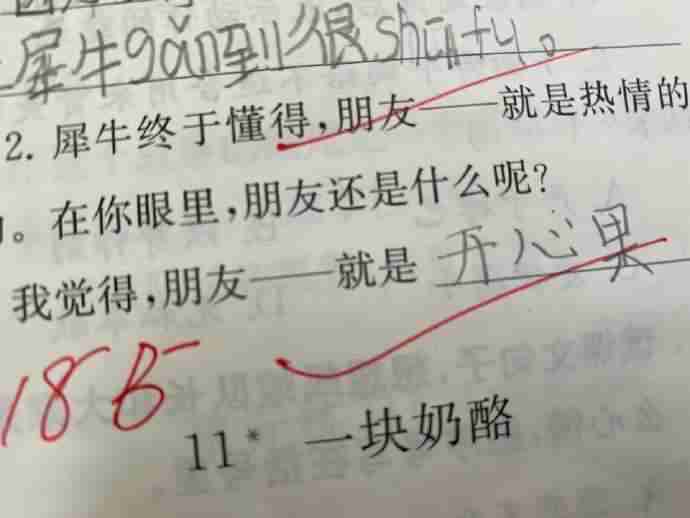 犀牛gǎn到很shūfu。
2. 犀牛终于懂得,朋友——就是热情的
。在你眼里,朋友还是什么呢?
我觉得,朋友——就是 开心果
11* 一块奶酪